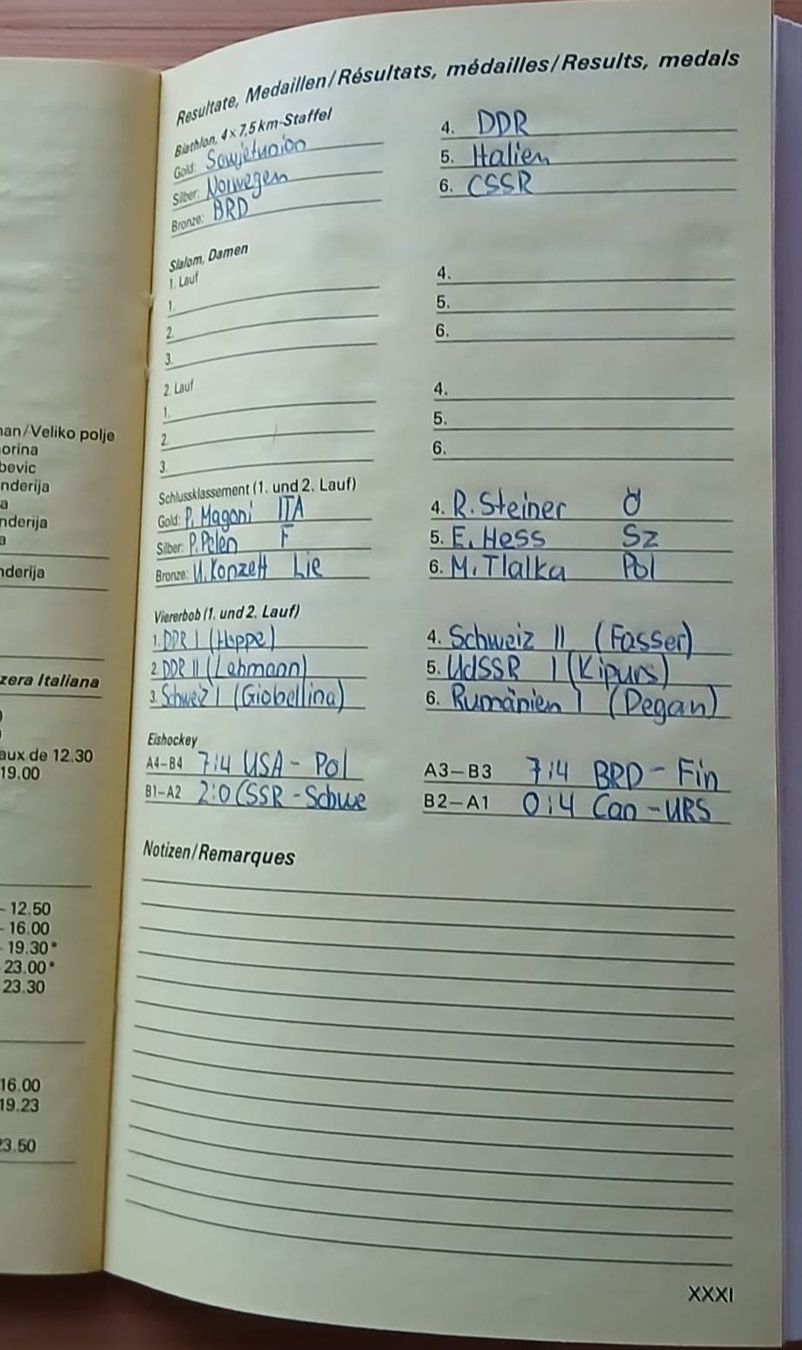 an/Veliko polje
orina
bevic
nderija
a
nderija
a
nderija
zera Italiana
aux de 12.30
19.00
- 12.50
- 16.00
- 19.30*
23.00*
23.30
16.00
19.23
23.50
Resultate, Medaillen/Résultats, médailles/Results, medals
Biathlon, 4×7,5 km-Staffel
Gold: Sowjetunion
Silber: Norwegen
Bronze: BRD
4. DDR
5. Italien
6. CSSR
Slalom, Damen
1. Lauf
1.
2.
3.
4.
5.
6.
2. Lauf
1.
2.
3.
4.
5.
6.
Schlussklassement (1. und 2. Lauf)
Gold: P. Magoni ITA
Silber: P. Pelen F
Bronze: U. Konzett Lie
4. R. Steiner Ö
5. E. Hess Sz
6. M. Tlalka Pol
Viererbob (1. und 2. Lauf)
1. DDR I (Hoppe)
2. DDR II (Lehmann)
3. Schweiz I (Giobellina)
4. Schweiz II (Fasser)
5. UdSSR I (Kipurs)
6. Rumänien I (Degan)
Eishockey
A4–B4 7:4 USA - Pol
B1–A2 2:0 CSSR - Schwe
A3–B3 7:4 BRD - Fin
B2–A1 0:4 Can - URS
Notizen/Remarques
XXXI